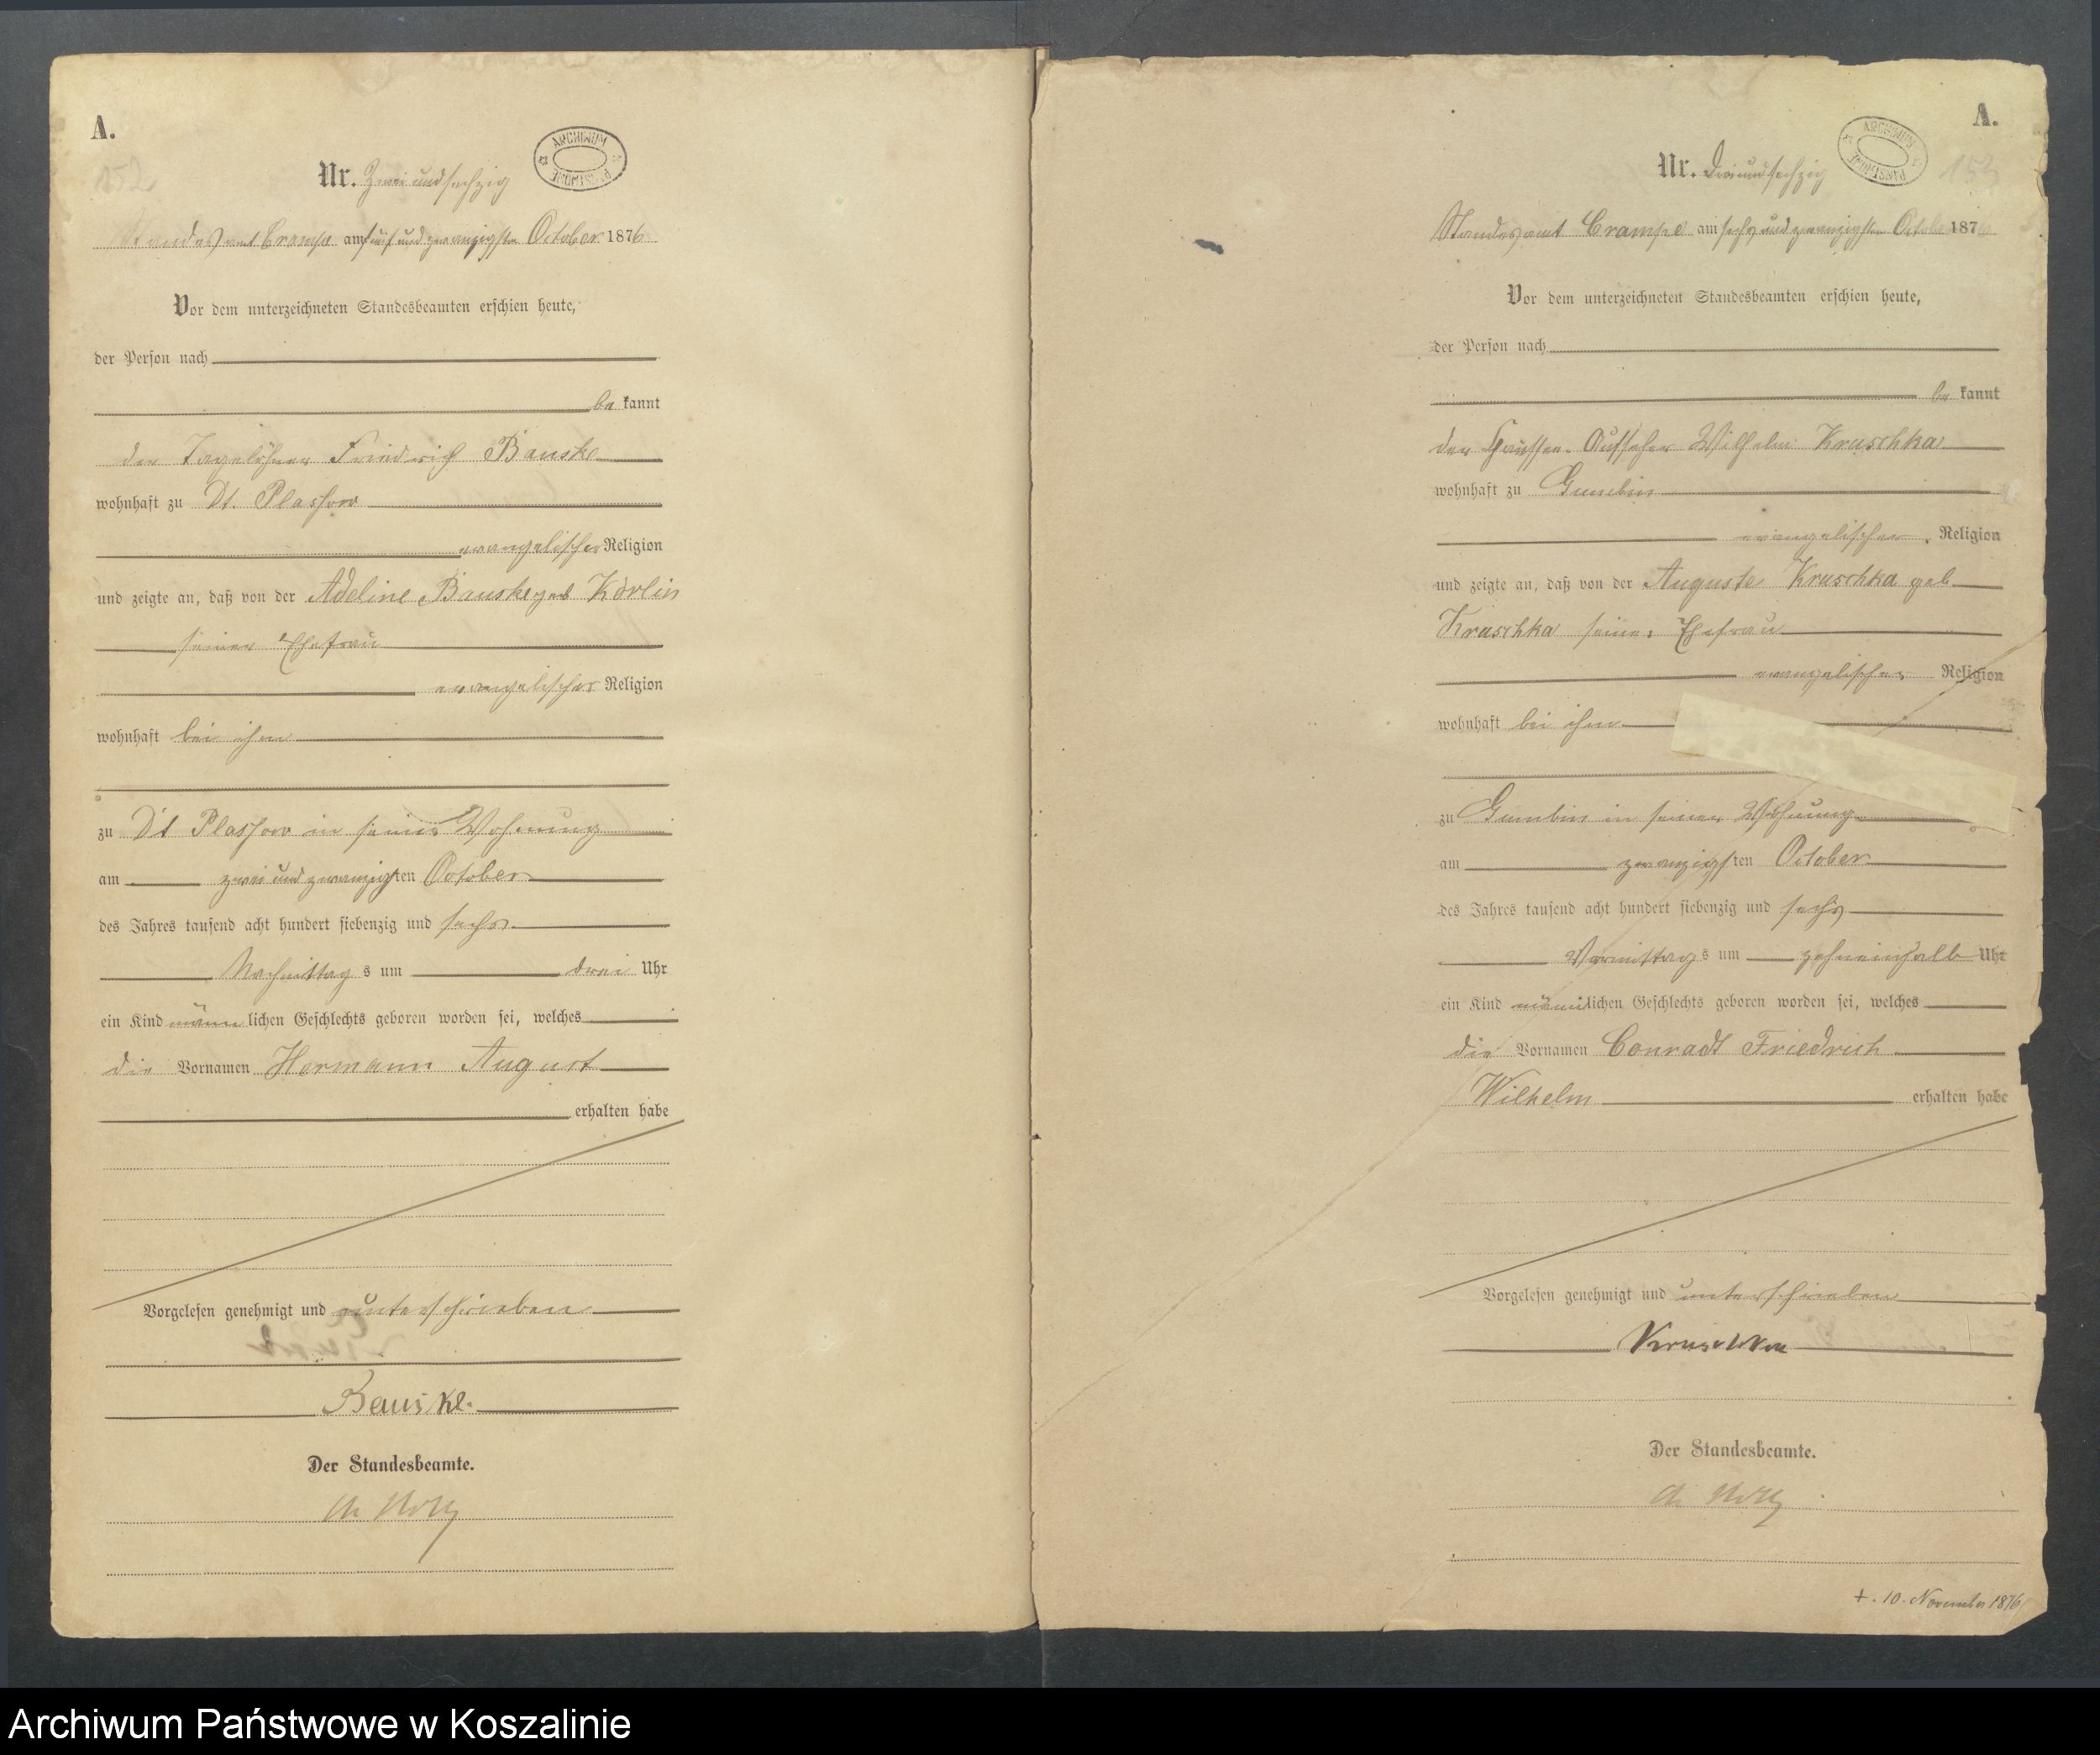 A.
152
Nr. Zwei und sechzig
ARCHIWUM PAŃSTWOWE
Standesamt Crampe am fünf und zwanzigsten October 1876
Vor dem unterzeichneten Standesbeamten erschien heute,
der Person nach
be kannt
der Tagelöhner Friedrich Bauske
wohnhaft zu Dt. Plassow
evangelischer Religion
und zeigte an, daß von der Adeline Bauske geb Körlin
seiner Ehefrau
evangelischer Religion
wohnhaft bei ihm
zu Dt Plassow in seiner Wohnung
am zwei und zwanzigsten October
des Jahres tausend acht hundert siebenzig und sechs
Nachmittag s um drei Uhr
ein Kind männ lichen Geschlechts geboren worden sei, welches
die Vornamen Hermann August
erhalten habe
Vorgelesen genehmigt und unterschrieben
Bauske.
Der Standesbeamte.
A.
153
Nr. Drei und sechzig
ARCHIWUM PAŃSTWOWE
Standesamt Crampe am sechs und zwanzigsten October 1876
Vor dem unterzeichneten Standesbeamten erschien heute,
der Person nach
be kannt
der Chaussee-Aufseher Wilhelm Kruschka
wohnhaft zu Gumbin
evangelischer Religion
und zeigte an, daß von der Auguste Kruschka geb
Kruschka seiner Ehefrau
evangelischer Religion
wohnhaft bei ihm
zu Gumbin in seiner Wohnung
am zwanzigsten October
des Jahres tausend acht hundert siebenzig und sechs
Vormittags um zehneinhalb Uhr
ein Kind männlichen Geschlechts geboren worden sei, welches
die Vornamen Conradt Friedrich
Wilhelm erhalten habe
Vorgelesen genehmigt und unterschrieben
Kruschka
Der Standesbeamte.
+. 10. November 1876
Archiwum Państwowe w Koszalinie